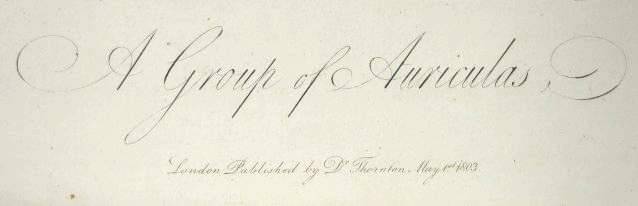 A Group of Auriculas,
London Published by Dr Thornton, May 1st 1803.